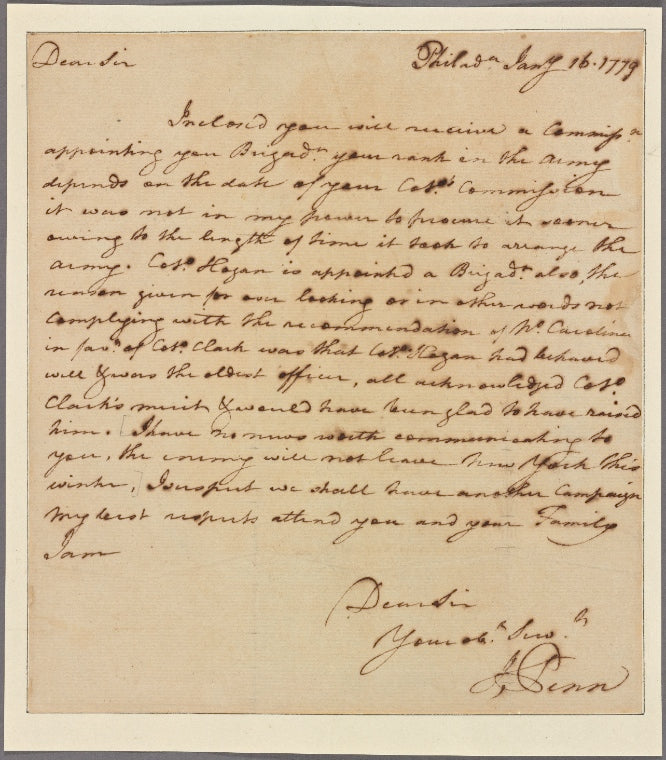 Dear Sir Philad.a Jany 16. 1779
Inclos'd you will receive a Commiss.n
appointing you Brigad.r your rank in the army
depends on the date of your Col.os Commission
it was not in my power to procure it sooner
owing to the length of time it took to arrange the
army. Col.o Hogan is appointed a Brigad.r also, the
reason given for over looking or in other words not
complying with the recommendation of N.o Carolina
in fav.r of Col.o Clark was that Col.o Hogan had behaved
well & was the oldest officer, all acknowledged Col.o
Clark's merit & would have been glad to have raised
him. I have no news worth communicating to
you, the enemy will not leave New York this
winter, I suspect we shall have another Campaign
My best respects attend you and your Family
I am
Dear Sir
Your ob.t Serv.t
J, Penn